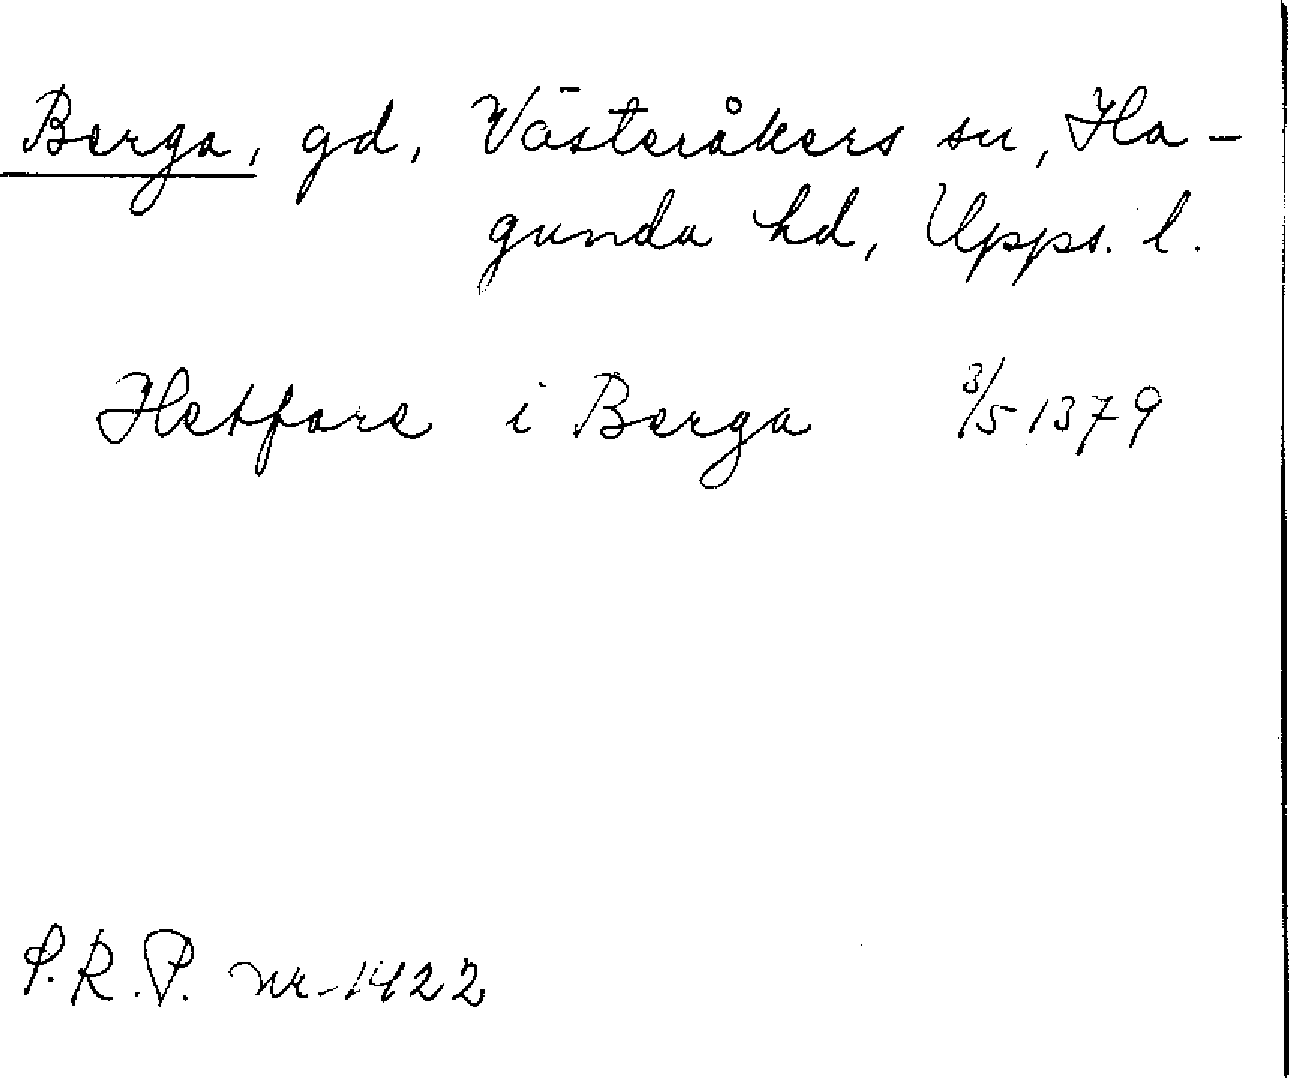 Berga, gd, Västeråkers sn, Ha-
gunda hd, Upps. l.
Hetfare i Berga 3/5 1379
S.R.P. nr 1422